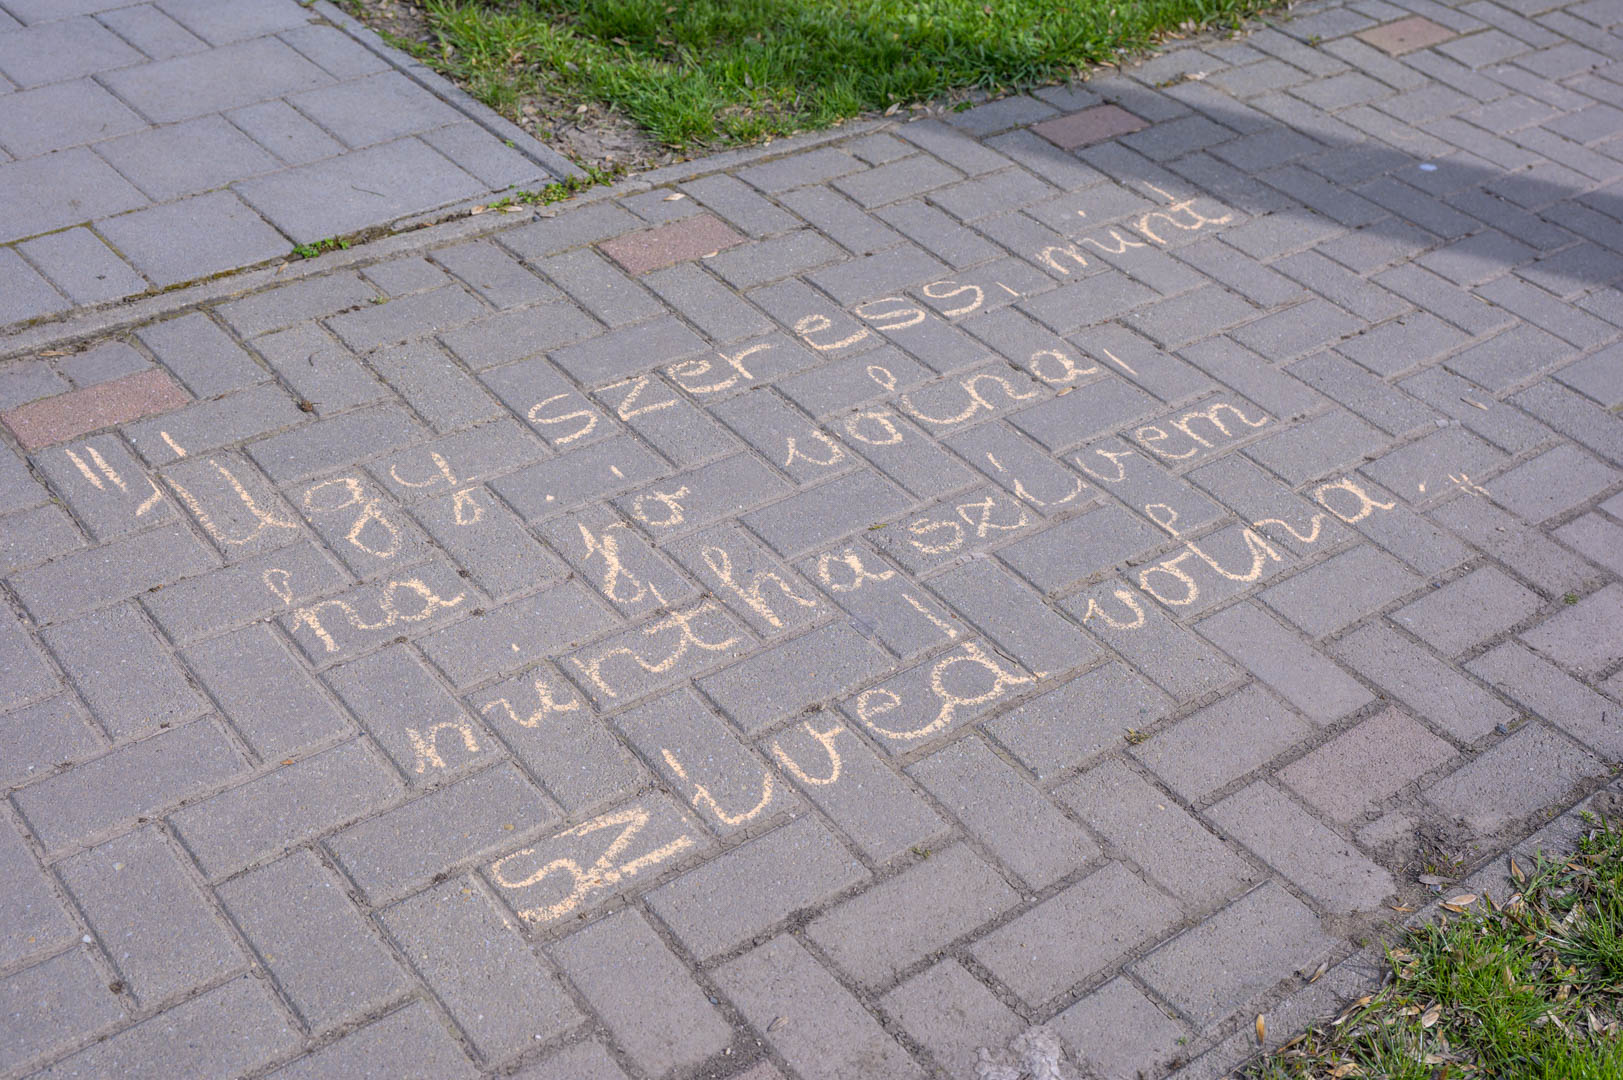 "Úgy szeress, mint
ha jó volna,
mintha szívem
szíved volna."